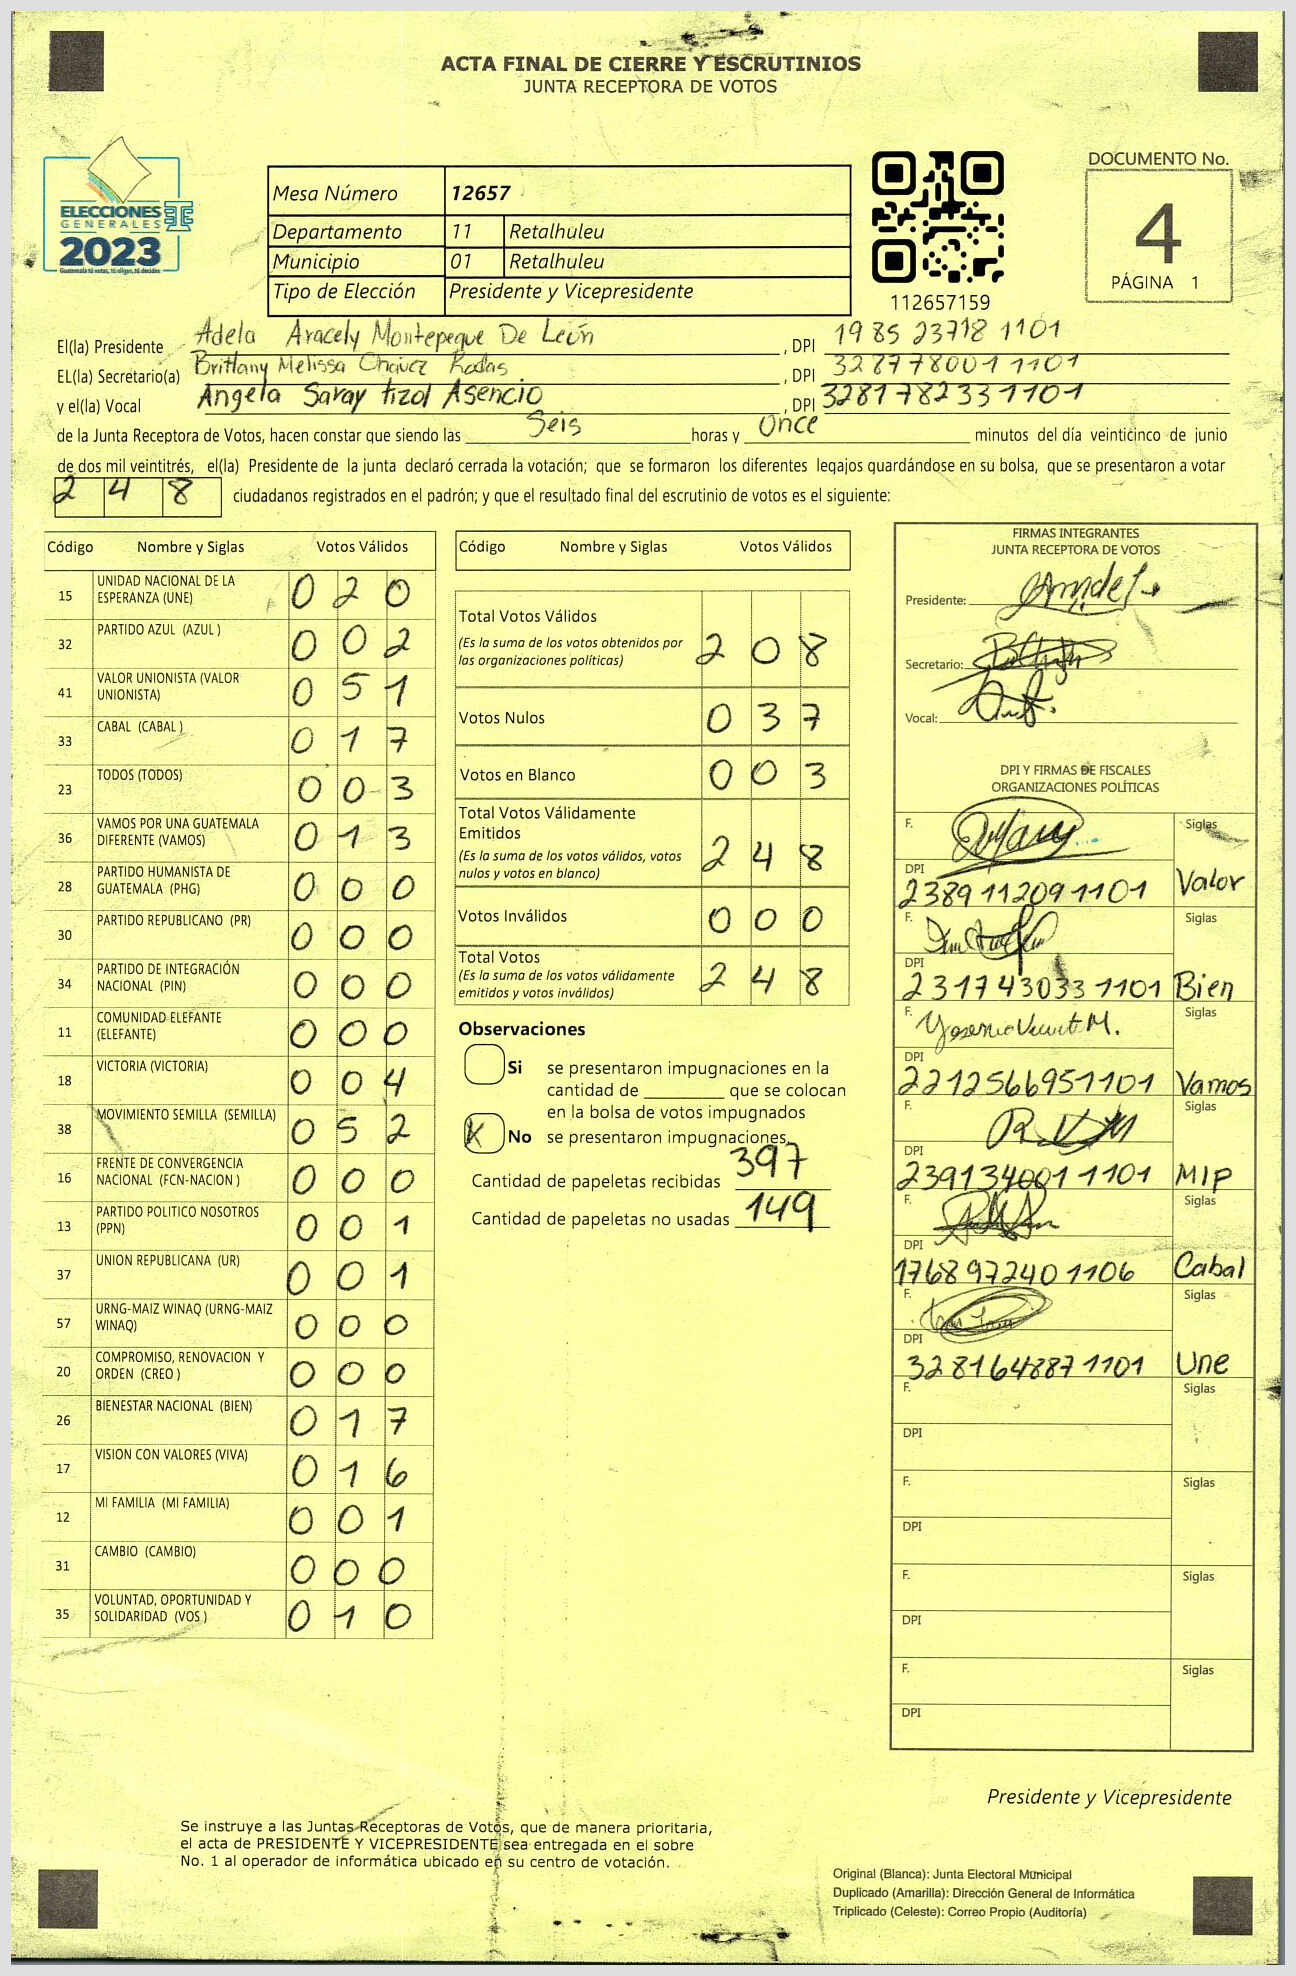 ACTA FINAL DE CIERRE Y ESCRUTINIOS
JUNTA RECEPTORA DE VOTOS
ELECCIONES
GENERALES
2023
Guatemala tú votas, tú eliges, tú decides
Mesa Número 12657
Departamento 11 Retalhuleu
Municipio 01 Retalhuleu
Tipo de Elección Presidente y Vicepresidente
112657159
DOCUMENTO No.
4
PÁGINA 1
El(la) Presidente Adela Aracely Montepeque De León, DPI 1985 23718 1101
EL(la) Secretario(a) Brittany Melissa Chávez Rodas, DPI 328778001 1101
y el(la) Vocal Angela Saray tizol Asencio, DPI 3281782331101
de la Junta Receptora de Votos, hacen constar que siendo las Seis horas y Once minutos del día veinticinco de junio
de dos mil veintitrés, el(la) Presidente de la junta declaró cerrada la votación; que se formaron los diferentes legajos guardándose en su bolsa, que se presentaron a votar
248 ciudadanos registrados en el padrón; y que el resultado final del escrutinio de votos es el siguiente:
Código Nombre y Siglas Votos Válidos
15 UNIDAD NACIONAL DE LA ESPERANZA (UNE) 0 2 0
32 PARTIDO AZUL (AZUL ) 0 0 2
41 VALOR UNIONISTA (VALOR UNIONISTA) 0 5 1
33 CABAL (CABAL ) 0 1 7
23 TODOS (TODOS) 0 0 3
36 VAMOS POR UNA GUATEMALA DIFERENTE (VAMOS) 0 1 3
28 PARTIDO HUMANISTA DE GUATEMALA (PHG) 0 0 0
30 PARTIDO REPUBLICANO (PR) 0 0 0
34 PARTIDO DE INTEGRACIÓN NACIONAL (PIN) 0 0 0
11 COMUNIDAD ELEFANTE (ELEFANTE) 0 0 0
18 VICTORIA (VICTORIA) 0 0 4
38 MOVIMIENTO SEMILLA (SEMILLA) 0 5 2
16 FRENTE DE CONVERGENCIA NACIONAL (FCN-NACION ) 0 0 0
13 PARTIDO POLITICO NOSOTROS (PPN) 0 0 1
37 UNION REPUBLICANA (UR) 0 0 1
57 URNG-MAIZ WINAQ (URNG-MAIZ WINAQ) 0 0 0
20 COMPROMISO, RENOVACION Y ORDEN (CREO ) 0 0 0
26 BIENESTAR NACIONAL (BIEN) 0 1 7
17 VISION CON VALORES (VIVA) 0 1 6
12 MI FAMILIA (MI FAMILIA) 0 0 1
31 CAMBIO (CAMBIO) 0 0 0
35 VOLUNTAD, OPORTUNIDAD Y SOLIDARIDAD (VOS ) 0 1 0
Código Nombre y Siglas Votos Válidos
Total Votos Válidos 2 0 8
(Es la suma de los votos obtenidos por
las organizaciones políticas)
Votos Nulos 0 3 7
Votos en Blanco 0 0 3
Total Votos Válidamente
Emitidos 2 4 8
(Es la suma de los votos válidos, votos
nulos y votos en blanco)
Votos Inválidos 0 0 0
Total Votos 2 4 8
(Es la suma de los votos válidamente
emitidos y votos inválidos)
Observaciones
Si se presentaron impugnaciones en la
cantidad de ________ que se colocan
en la bolsa de votos impugnados
X No se presentaron impugnaciones.
Cantidad de papeletas recibidas 397
Cantidad de papeletas no usadas 149
FIRMAS INTEGRANTES
JUNTA RECEPTORA DE VOTOS
Presidente:
Secretario:
Vocal:
DPI Y FIRMAS DE FISCALES
ORGANIZACIONES POLÍTICAS
F. Siglas
DPI
2389 11209 1101 Valor
F. Siglas
DPI
2317430331101 Bien
F. Siglas
DPI
2212566951101 Vamos
F. Siglas
DPI
239134001 1101 MLP
F. Siglas
DPI
1768972401106 Cabal
F. Siglas
DPI
3281648871101 Une
F. Siglas
DPI
F. Siglas
DPI
F. Siglas
DPI
F. Siglas
DPI
Presidente y Vicepresidente
Se instruye a las Juntas Receptoras de Votos, que de manera prioritaria,
el acta de PRESIDENTE Y VICEPRESIDENTE sea entregada en el sobre
No. 1 al operador de informática ubicado en su centro de votación.
Original (Blanca): Junta Electoral Municipal
Duplicado (Amarilla): Dirección General de Informática
Triplicado (Celeste): Correo Propio (Auditoría)